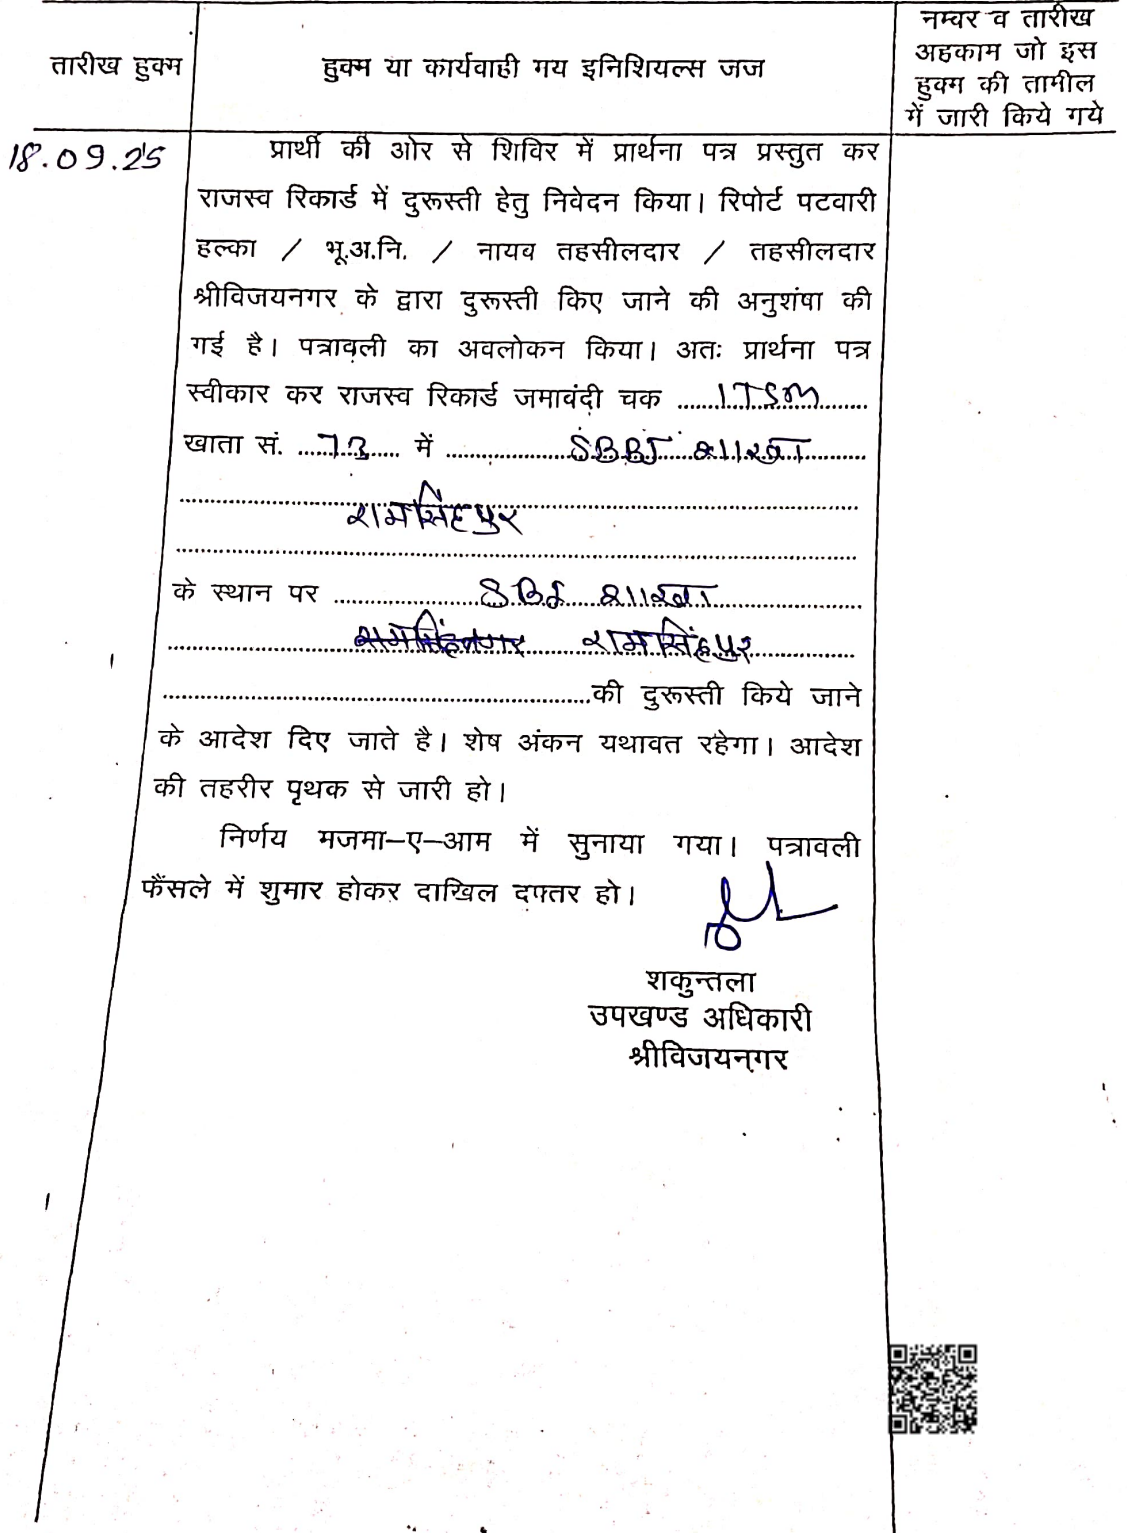 तारीख हुक्म
हुक्म या कार्यवाही मय इनिशियल्स जज
नम्वर व तारीख
अहकाम जो इस
हुक्म की तामील
में जारी किये गये
18.09.25
प्रार्थी की ओर से शिविर में प्रार्थना पत्र प्रस्तुत कर
राजस्व रिकार्ड में दुरूस्ती हेतु निवेदन किया। रिपोर्ट पटवारी
हल्का / भू.अ.नि. / नायब तहसीलदार / तहसीलदार
श्रीविजयनगर के द्वारा दुरूस्ती किए जाने की अनुशंषा की
गई है। पत्रावली का अवलोकन किया। अतः प्रार्थना पत्र
स्वीकार कर राजस्व रिकार्ड जमाबंदी चक ...1TSM...
खाता सं. ...73... में ...SBBJ शाखा...
रामसिंहपुर
के स्थान पर ...SBI शाखा...
रामसिंहपुर
की दुरूस्ती किये जाने
के आदेश दिए जाते है। शेष अंकन यथावत रहेगा। आदेश
की तहरीर पृथक से जारी हो।
निर्णय मजमा–ए–आम में सुनाया गया। पत्रावली
फैंसले में शुमार होकर दाखिल दफ्तर हो।
शकुन्तला
उपखण्ड अधिकारी
श्रीविजयनगर